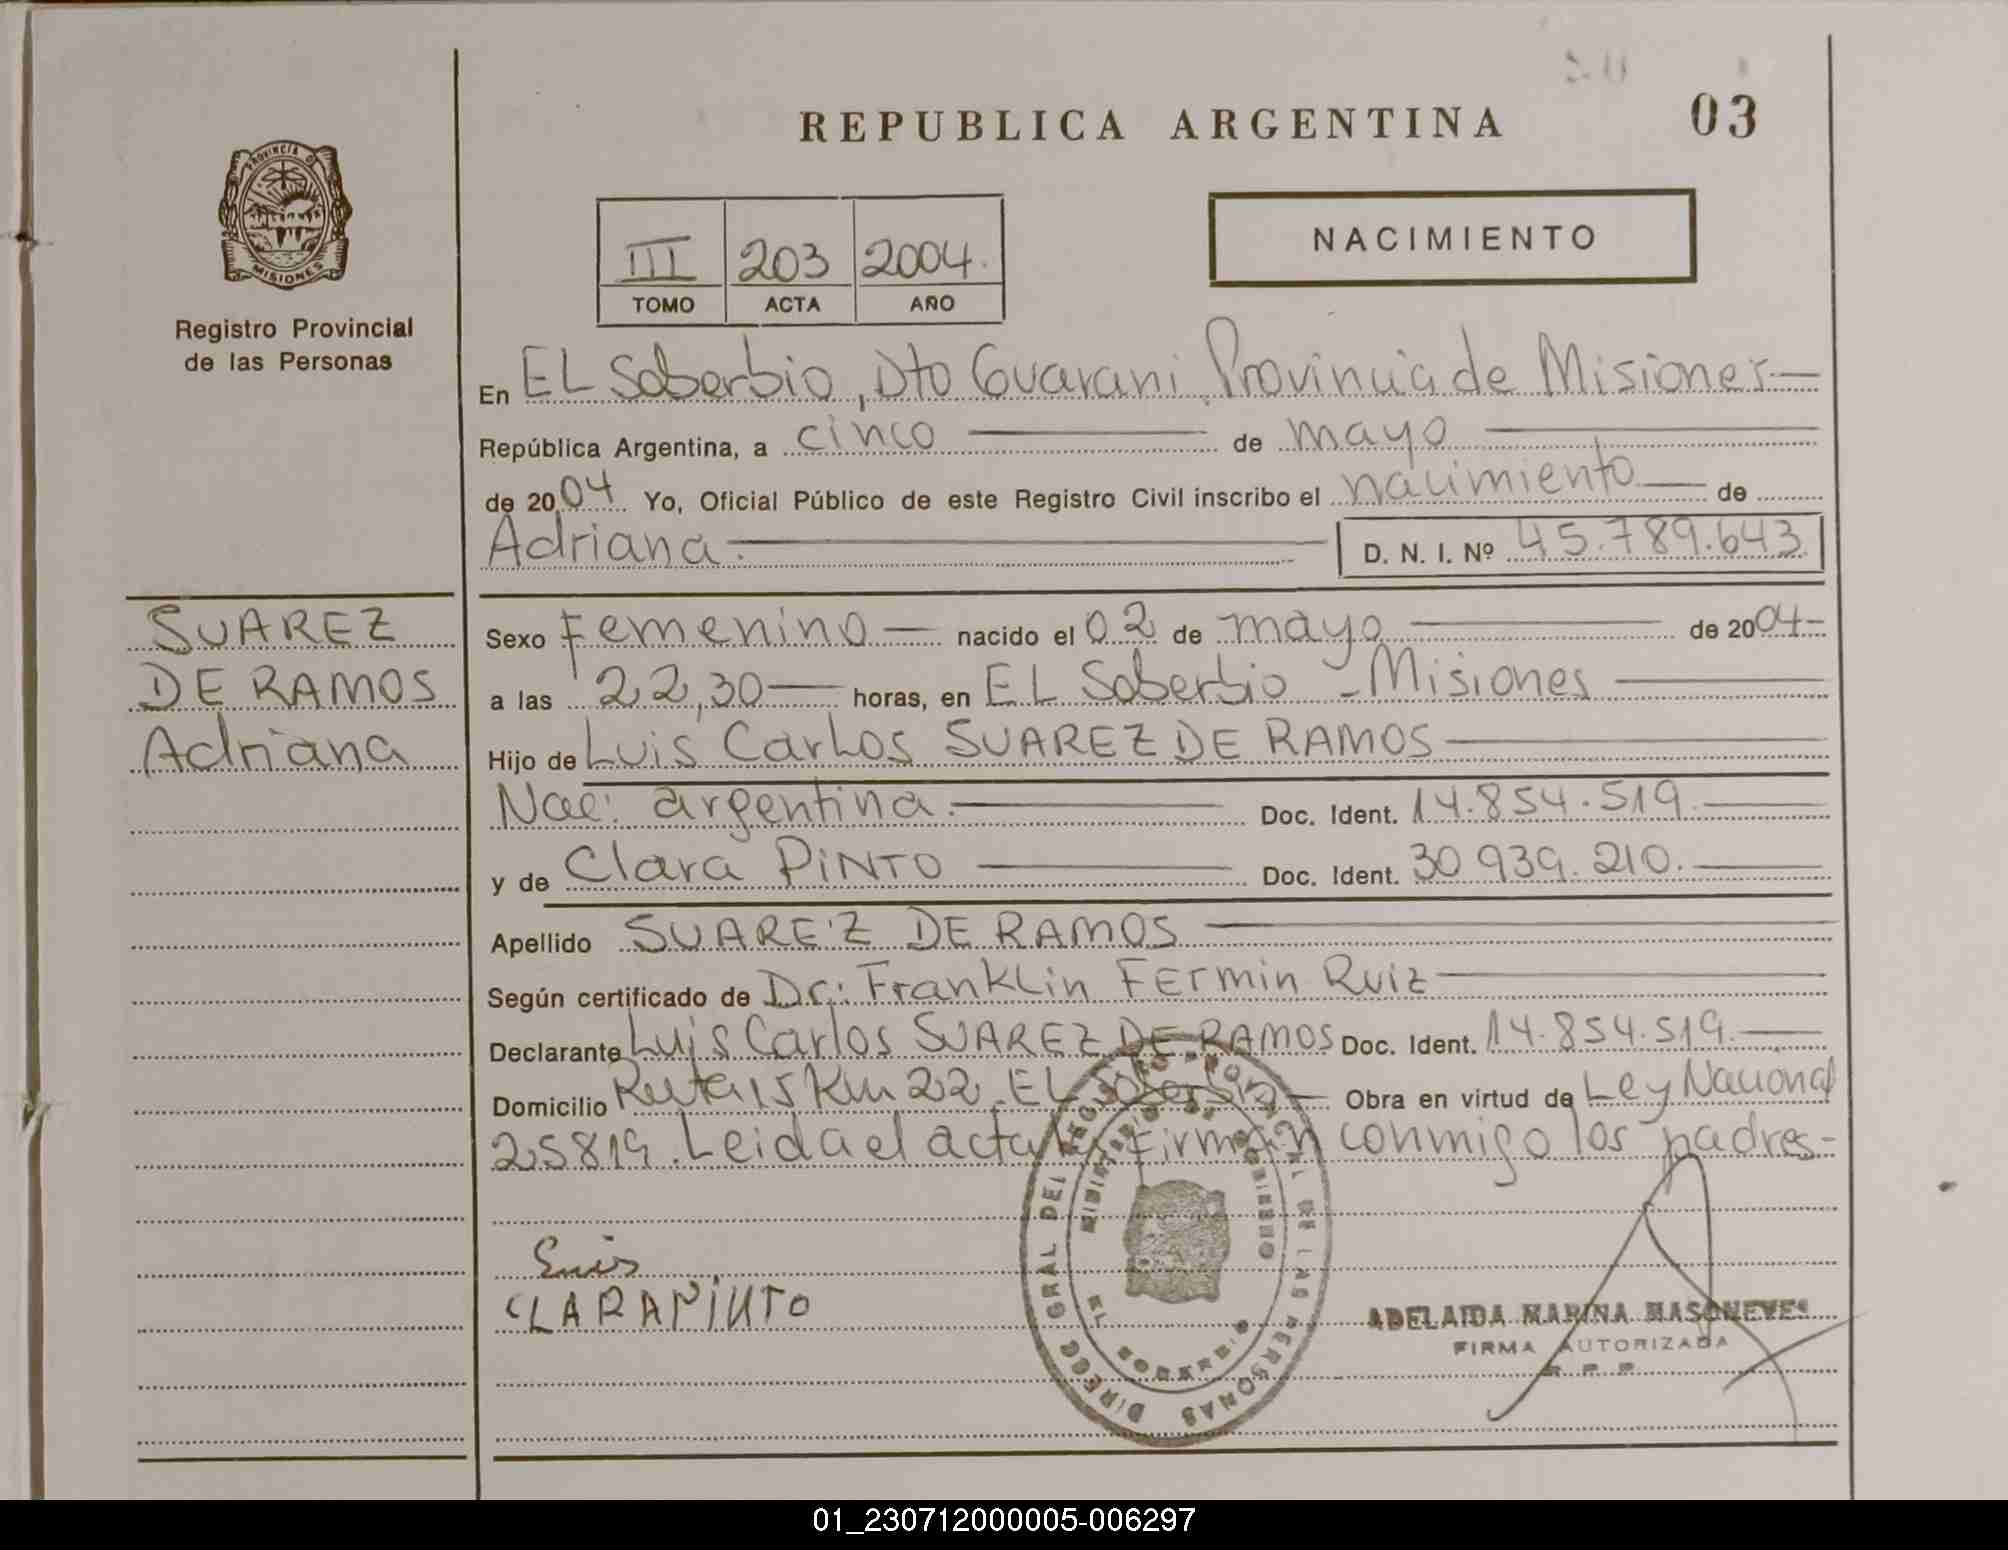 REPUBLICA ARGENTINA
03
PROVINCIA D
MISIONES
Registro Provincial
de las Personas
III 203 2004.
TOMO ACTA AÑO
NACIMIENTO
En EL Soberbio, Dto Guarani Provincia de Misiones
República Argentina, a cinco de mayo
de 2004 Yo, Oficial Público de este Registro Civil inscribo el nacimiento de
Adriana. D. N. I. Nº 45.789.643
SUAREZ
DE RAMOS
Adriana
Sexo Femenino nacido el 02 de mayo de 2004
a las 22,30 horas, en EL Soberbio - Misiones
Hijo de Luis Carlos SUAREZ DE RAMOS
Nac: argentina. Doc. Ident. 14.854.519
y de Clara PINTO Doc. Ident. 30 939.210.
Apellido SUAREZ DE RAMOS
Según certificado de Dr: Franklin Fermin Ruiz
Declarante Luis Carlos SUAREZ DE RAMOS Doc. Ident. 14.854.519.
Domicilio Ruta 15 Km 22. EL Soberbio Obra en virtud de Ley Nacional
25819. Leida el acta firman conmigo los padres-
Luis
CLARA PINTO
DIRECC GRAL DEL REGISTRO PROVINCIAL DE LAS PERSONAS
MINISTERIO DE GOBIERNO
EL SOBERBIO
ADELAIDA MARINA
FIRMA AUTORIZADA
R.P.P.
01_230712000005-006297